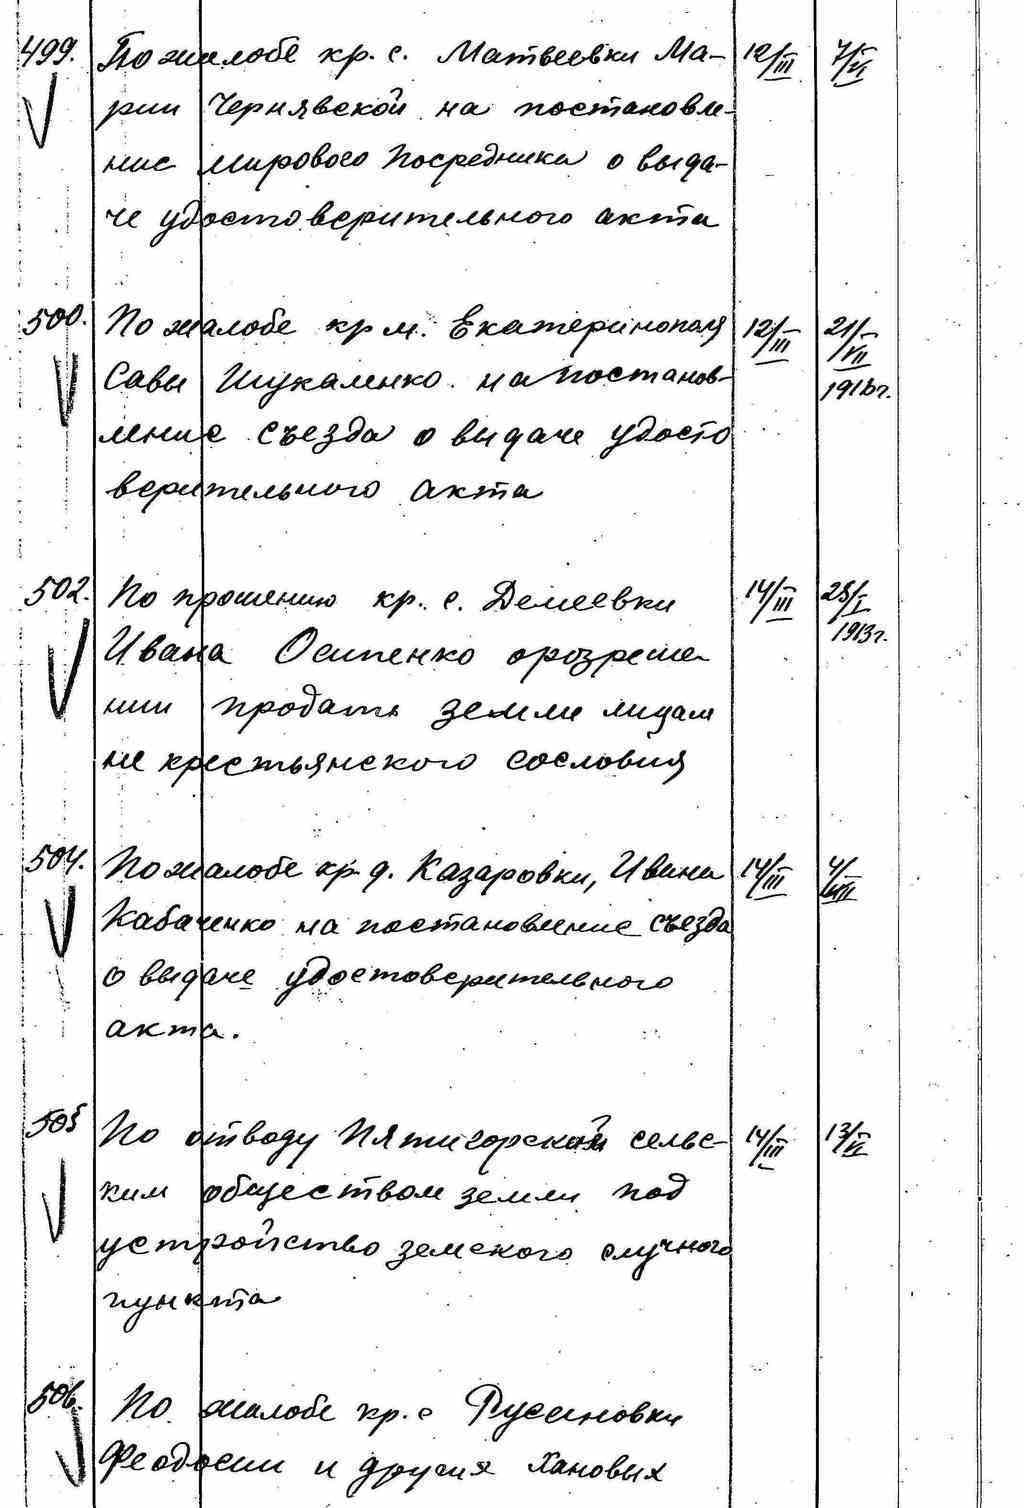 499. По жалобе кр. с. Матвеевки Ма- 12/III 7/VI
рии Чернявской на постановле-
ние мирового посредника о выда-
че удостоверительного акта
500. По жалобе кр м. Екатеринополя 12/III 21/VII
Савы Шукаленко на постанов- 1913г.
ление съезда о выдаче удосто
верительного акта
502. По прошению кр. с. Демеевки 14/III 28/I
Ивана Осипенко оразреше- 1913г.
нии продать земли лицам
не крестьянского сословия
504. По жалобе кр. д. Казаровки, Ивана 14/III 4/VII
Кабаченко на постановление съезда
о выдаче удостоверительного
акта.
505 По отводу Пятигорским сельс- 14/III 13/VI
ким обществом земли под
устройство земского случного
пункта
506. По жалобе кр. с Русановки
Феодосии и других Хановых